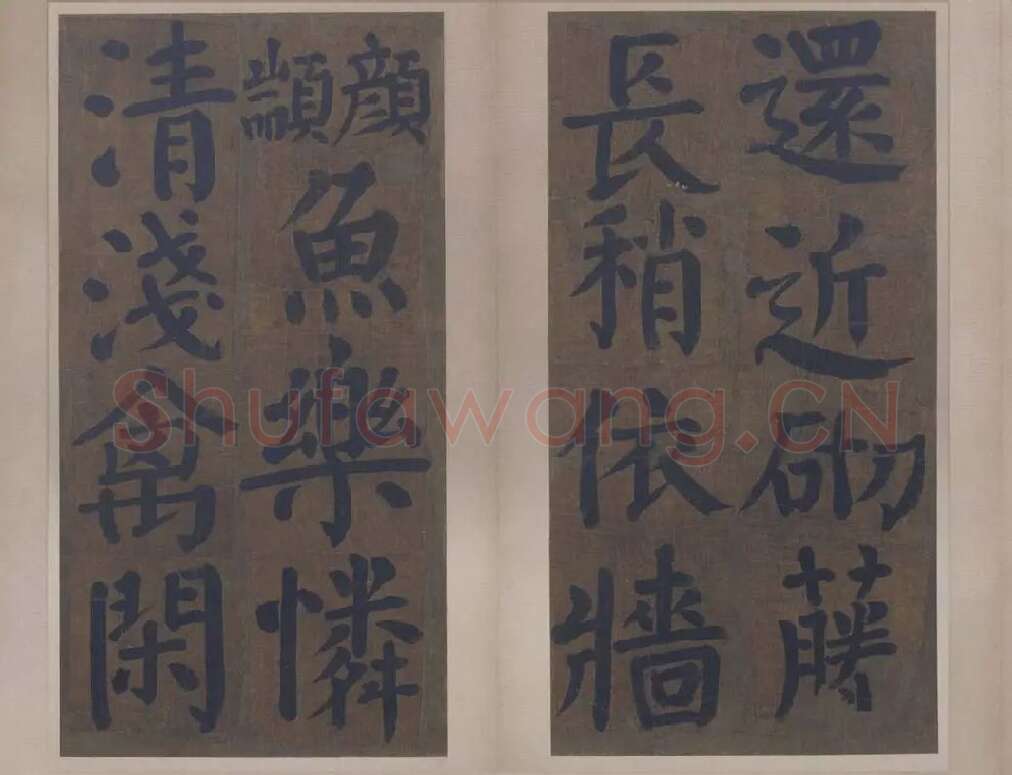 還近砌藤
長稍依牆
顔顓
魚樂憐
清淺禽閑
Shufawang.CN